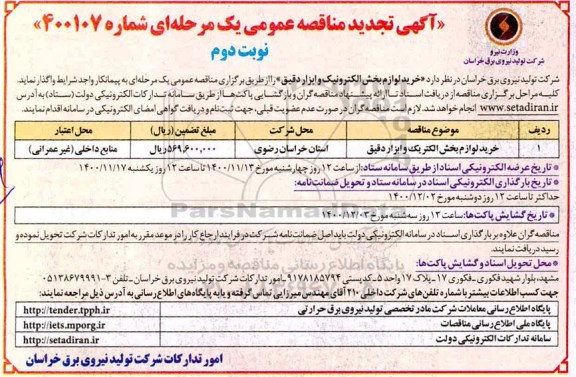 «آگهی تجدید مناقصه عمومی یک مرحله‌ای شماره ۴۰۰۱۰۷»
نوبت دوم
وزارت نیرو
شرکت تولید نیروی برق خراسان
شرکت تولید نیروی برق خراسان در نظر دارد «خرید لوازم بخش الکترونیک و ابزار دقیق» را از طریق برگزاری مناقصه عمومی یک مرحله‌ای به پیمانکار واجد شرایط واگذار نماید.
کلیه مراحل برگزاری مناقصه از دریافت اسناد تا ارائه پیشنهاد مناقصه‌گران و بازگشایی پاکت‌ها، از طریق سامانه تدارکات الکترونیکی دولت (ستاد) به آدرس
www.setadiran.ir انجام خواهد شد. لازم است مناقصه‌گران در صورت عدم عضویت قبلی، جهت ثبت نام و دریافت گواهی امضای الکترونیکی در سامانه اقدام نمایند.
ردیف موضوع مناقصه محل شرکت مبلغ تضمین (ریال) محل اعتبار
۱ خرید لوازم بخش الکتریک و ابزار دقیق استان خراسان رضوی ۵۶۹,۶۰۰,۰۰۰ ریال منابع داخلی (غیر عمرانی)
* تاریخ عرضه الکترونیکی اسناد از طریق سامانه ستاد: از ساعت ۱۲ روز چهارشنبه مورخ ۱۴۰۰/۱۱/۱۳ تا ساعت ۱۲ روز یکشنبه ۱۴۰۰/۱۱/۱۷
* تاریخ بارگذاری الکترونیکی اسناد در سامانه ستاد و تحویل ضمانت‌نامه:
حداکثر تا ساعت ۱۲ روز دوشنبه مورخ ۱۴۰۰/۱۲/۰۲
* تاریخ گشایش پاکت‌ها: ساعت ۱۲ روز سه‌شنبه مورخ ۱۴۰۰/۱۲/۰۳
مناقصه‌گران علاوه بر بارگذاری اسناد در سامانه الکترونیکی دولت باید اصل ضمانت‌نامه شرکت در فرایند ارجاع کار را در موعد مقرر به امور تدارکات شرکت تحویل نموده و
رسید دریافت نمایند.
* محل تحویل اسناد و گشایش پاکت‌ها:
مشهد، بلوار شهید فکوری - فکوری ۱۷ - پلاک ۱۷ واحد ۵ - کدپستی ۹۱۷۸۱۸۵۷۹۴ - امور تدارکات شرکت تولید نیروی برق خراسان - تلفن ۳-۰۵۱۳۸۶۷۹۹۹۱
جهت کسب اطلاعات بیشتر با شماره تلفن‌های شرکت داخلی ۲۱۰ آقای مهندس میرزایی تماس گرفته و یا به پایگاه‌های اطلاع رسانی به آدرس ذیل مراجعه نمایند:
پایگاه اطلاع رسانی معاملات شرکت مادر تخصصی تولید نیروی برق حرارتی http://tender.tpph.ir
پایگاه ملی اطلاع رسانی مناقصات http://iets.mporg.ir
سامانه تدارکات الکترونیکی دولت http://setadiran.ir
امور تدارکات شرکت تولید نیروی برق خراسان